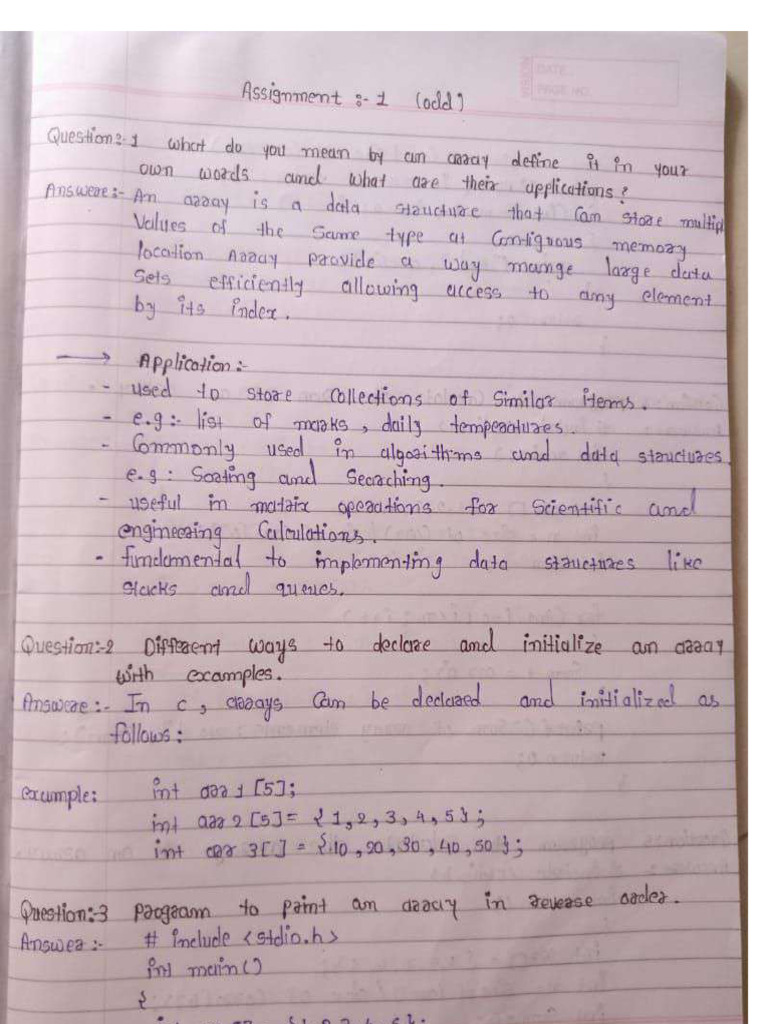 DATE
PAGE NO.
Assignment :- 1 (odd)
Question:-1 what do you mean by an array define it in your
own words and what are their applications?
Answere:- An array is a data structure that can store multipl
Values of the same type at contiguous memory
location Array provide a way mange large data
sets efficiently allowing access to any element
by its index.
→ Application:-
- used to store collections of similar items.
- e.g:- list of marks, daily temperatures.
- Commonly used in algorithms and data structures.
e.g: Sorting and Searching.
- useful in matrix operations for scientific and
engineering calculations.
- fundamental to implementing data structures like
stacks and queues.
Question:-2 Different ways to declare and initialize an array
with examples.
Answere:- In c, arrays can be declared and initialized as
follows:
example: int arr 1 [5];
int arr 2 [5] = {1, 2, 3, 4, 5};
int arr 3[] = {10, 20, 30, 40, 50};
Question:-3 program to print an array in reverse order.
Answer:- # include <stdio.h>
int main()
{